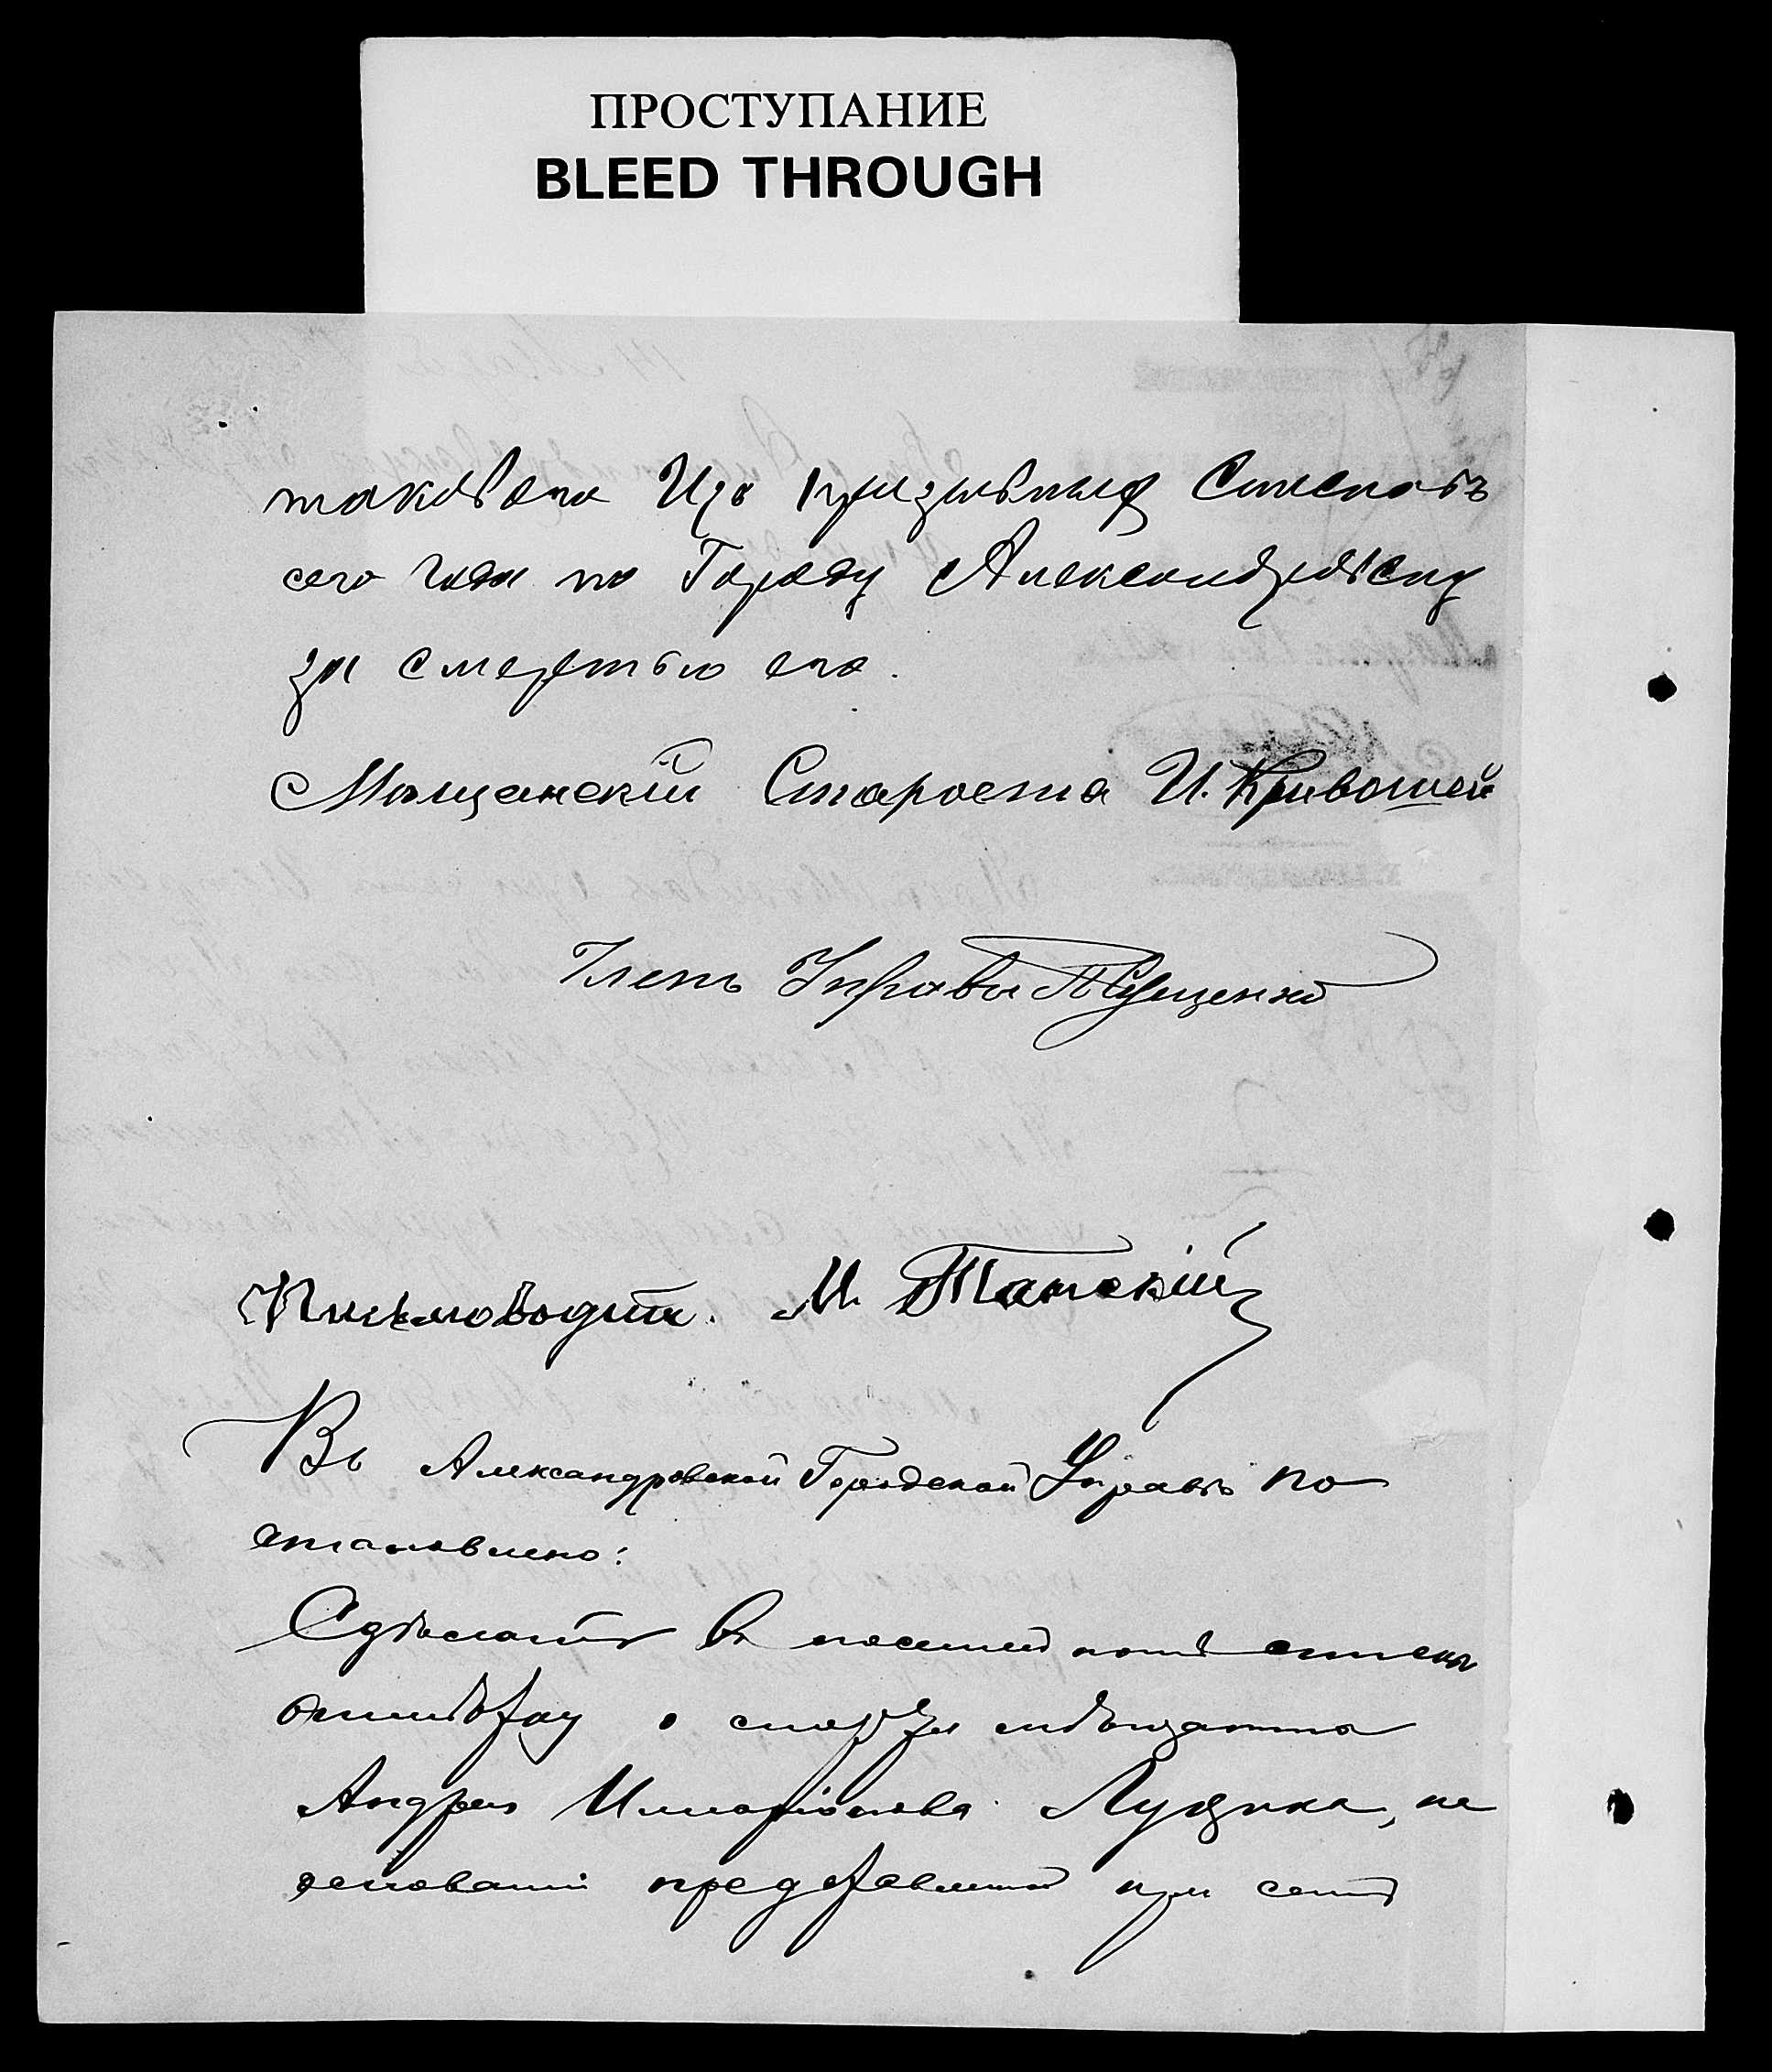 ПРОСТУПАНИЕ
BLEED THROUGH
таковаго Изъ призывныхъ Списковъ
сего года по Городу Александровску
за смертью его.
Мѣщанскій Староста И. Кривошей
Членъ Управы
Письмоводит. М. Танскій
Въ Александровской Городской Управѣ по
становлено:
Сдѣлать въ посемейномъ спискѣ
отмѣтку о смерти мѣщанина
Андрея Илларіонова Луцика, на
основаніи представленной при семъ